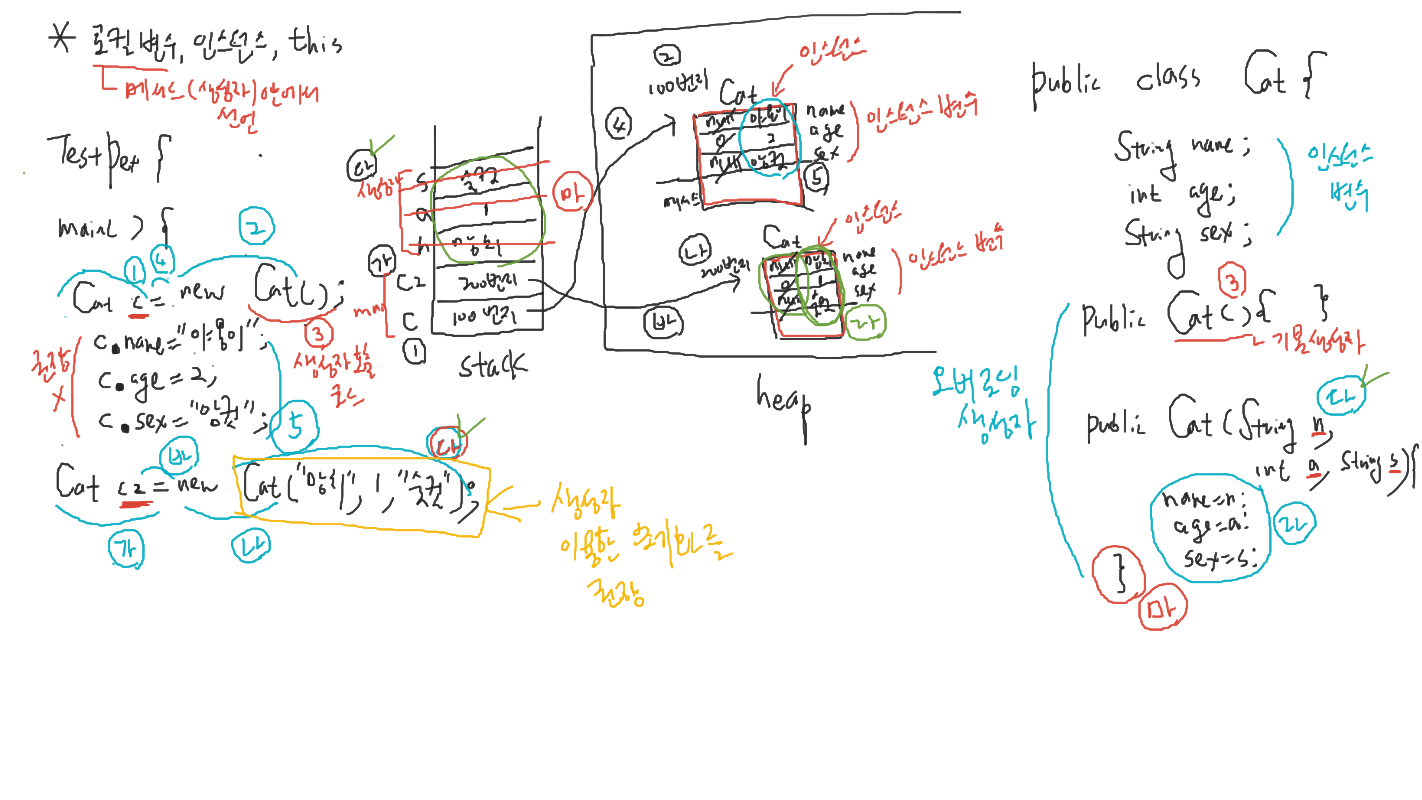 * 로컬변수, 인스턴스, this
메서드(생성자)안에서
선언
Testpet {
main( ) {
① ④ ②
Cat c = new Cat( );
③
생성자호출
코드
c.name="야옹이";
c.age = 2;
c.sex="암컷";
권장
X
⑤
Cat c2 = new Cat("망치", 1, "수컷");
가 나 다 바
생성자
이용한 초기화를
권장
다
생성자
s 수컷
a 1
n 망치
마
가
main
c2 200번지
c 100번지
①
stack
②
100번지
Cat
인스턴스
null 야옹이 name
0 2 age
null 암컷 sex
인스턴스 변수
메서드
④
⑤
나
200번지
Cat
인스턴스
null 망치 name
0 1 age
null 수컷 sex
인스턴스 변수
바
라
heap
public class Cat {
String name;
int age;
String sex;
인스턴스
변수
③
public Cat( ){ }
기본생성자
오버로딩
생성자
다
public Cat(String n,
int a, String s){
name=n;
age=a;
sex=s;
라
}
마